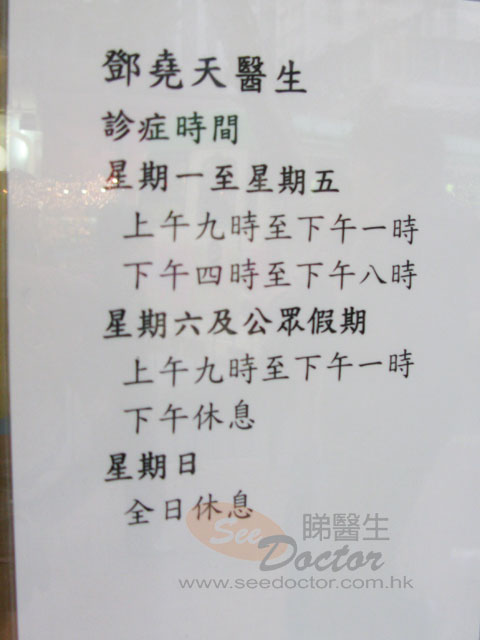 鄧堯天醫生
診症時間
星期一至星期五
上午九時至下午一時
下午四時至下午八時
星期六及公眾假期
上午九時至下午一時
下午休息
星期日
全日休息
See 睇醫生
Doctor
www.seedoctor.com.hk